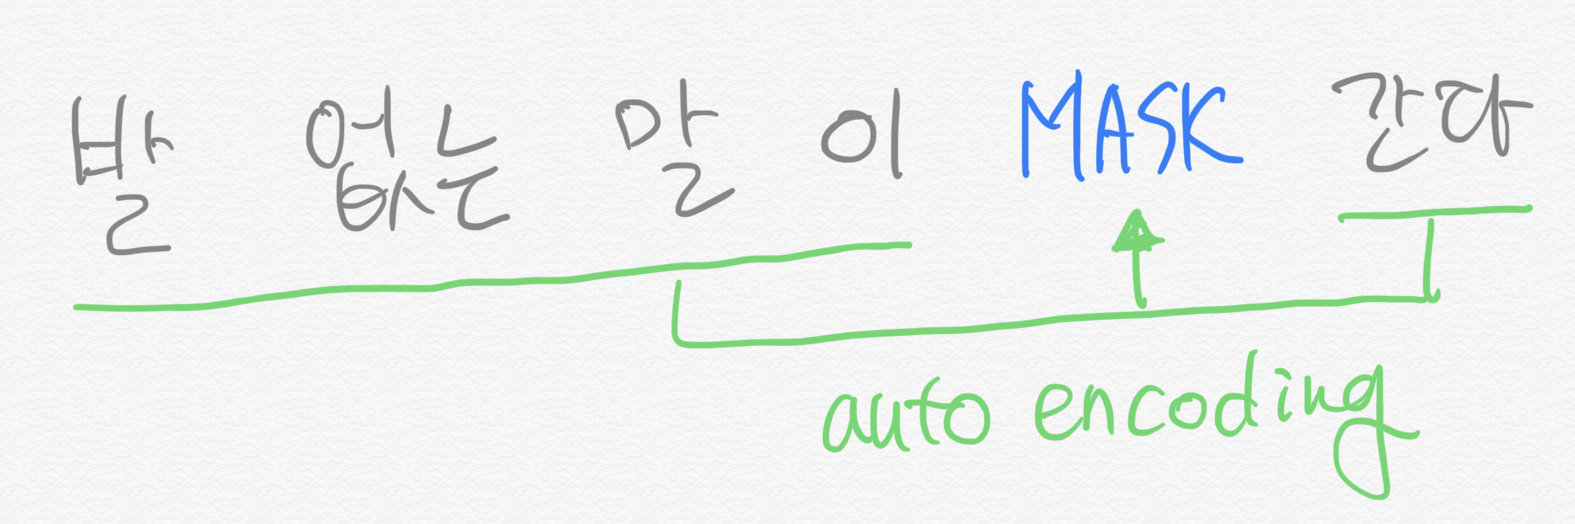 발 없는 말 이 MASK 간다
auto encoding